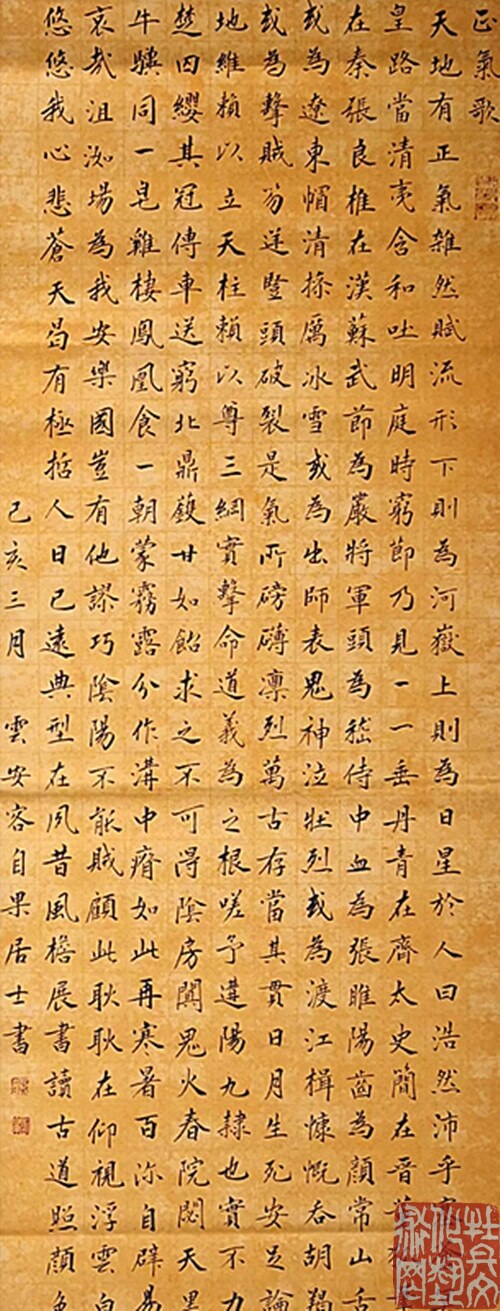 正氣歌
天地有正氣雜然賦流形下則為河嶽上則為日星於人曰浩然沛乎
皇路當清夷含和吐明庭時窮節乃見一一垂丹青在齊太史簡在晉
在秦張良椎在漢蘇武節為嚴將軍頭為嵇侍中血為張睢陽齒為顏常山舌
或為遼東帽清操厲冰雪或為出師表鬼神泣壯烈或為渡江楫慷慨吞胡羯
或為擊賊笏逆豎頭破裂是氣所磅礡凛烈萬古存當其貫日月生死安足論
地維賴以立天柱賴以尊三綱實擊命道義為之根嗟予遘陽九隸也實不力
楚囚纓其冠傳車送窮北鼎鑊甘如飴求之不可得陰房闃鬼火春院閟天黑
牛驥同一皂雞棲鳳凰食一朝蒙霧露分作溝中瘠如此再寒暑百沴自辟易
哀哉沮洳場為我安樂國豈有他謬巧陰陽不能賊顧此耿耿在仰視浮雲白
悠悠我心悲蒼天曷有極哲人日已遠典型在夙昔風檐展書讀古道照顏色
己亥三月 雲安客自果居士書